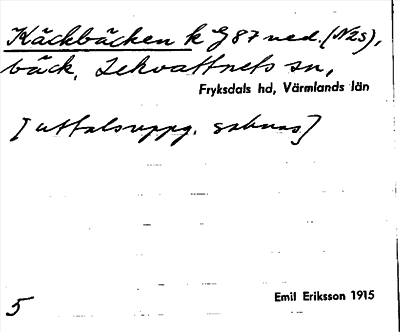 Käckbäcken k G 87 ned. (N2s),
bäck, Lekvattnets sn,
Fryksdals hd, Värmlands län
[uttalsuppg. saknas]
5
Emil Eriksson 1915